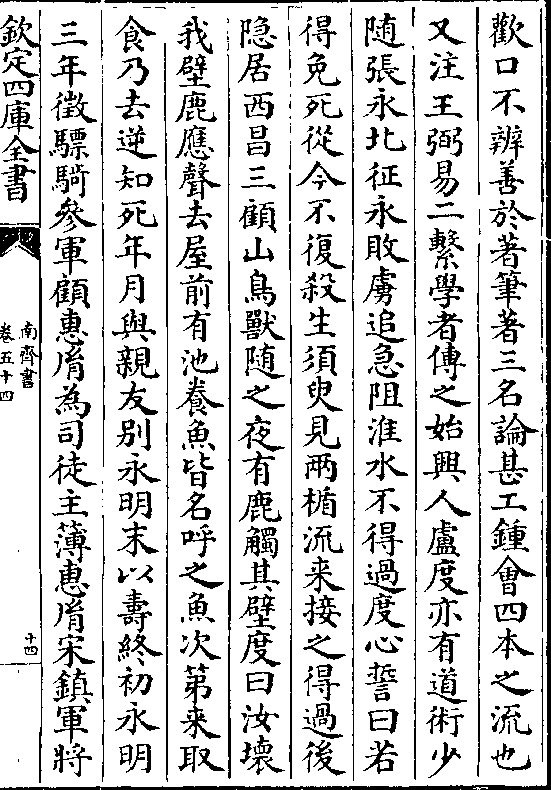 歡口不辨善於著筆著三名論甚工鍾會四本之流也
又注王弼易二繫學者傳之始興人盧度亦有道術少
隨張永北征永敗虜追急阻淮水不得過度心誓曰若
得免死從今不復殺生須臾見兩楯流来接之得過後
隐居西昌三顧山鳥獸随之夜有鹿觸其壁度曰汝壊
我壁鹿應聲去屋前有池養魚皆名呼之魚次第来取
食乃去逆知死年月與親友别永明末以壽終初永明
三年徵驃騎參軍顧惠胤為司徒主簿惠胤宋鎮軍將
欽定四庫全書
南齊書
卷五十四
十四